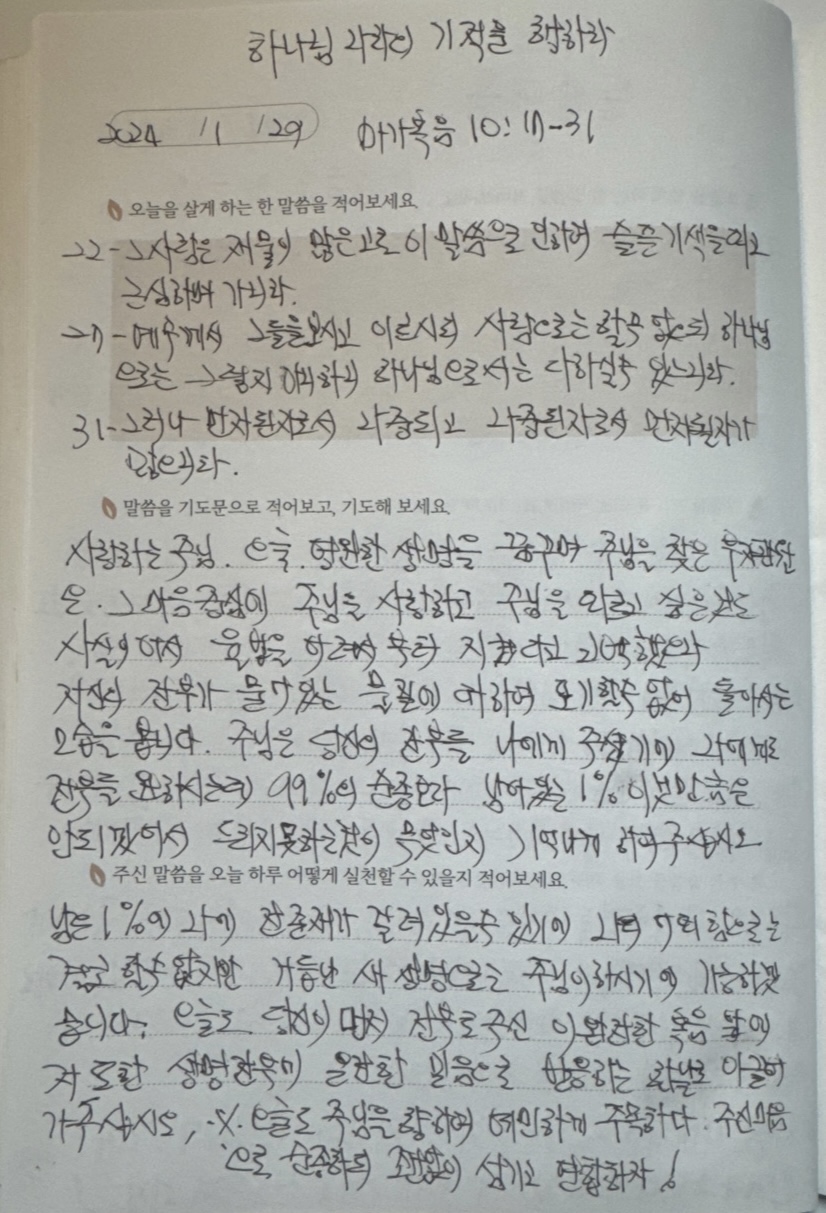 하나님 나라의 기적을 행하라
2024 / 1 / 29 마가복음 10:17-31
오늘을 살게 하는 한 말씀을 적어보세요.
22-그 사람은 재물이 많은고로 이 말씀으로 인하여 슬픈 기색을 띠고
근심하며 가니라.
27-예수께서 그들을 보시고 이르시되 사람으로는 할 수 없으되 하나님
으로는 그렇지 아니하니 하나님으로서는 다 하실 수 있느니라.
31-그러나 먼저 된 자로서 나중되고 나중된 자로서 먼저 될 자가
많으니라.
말씀을 기도문으로 적어보고, 기도해 보세요.
사랑하는 주님. 오늘. 영원한 생명을 꿈꾸며 주님을 찾은 부자관원
은. 그 마음 중심이 주님을 사랑하고 주님을 따르고 싶은 것도
사실이어서 율법을 어려서부터 지켰다고 고백했으나
자신의 전부가 물려있는 물질에 대하여 포기할 수 없어 돌아서는
모습을 봅니다. 주님은 당신의 전부를 나에게 주셨기에 나에게도
전부를 원하시는데 99%의 순종보다 남아있는 1% 이것만큼은
안되겠어서 드리지 못하는 것이 무엇인지 기억나게 하여 주십시오
주신 말씀을 오늘 하루 어떻게 실천할 수 있을지 적어보세요.
남은 1%에 나의 전존재가 걸려있을 수 있기에 나의 힘으로는
결코 할 수 없지만 거듭난 새 생명으로는 주님이 하시기에 가능하겠
습니다. 오늘도 당신이 먼저 전부로 주신 이 완전한 복음 앞에
저 또한 생명 전부의 온전한 믿음으로 반응하는 한날로 이끌어
가 주십시오, ※ 오늘도 주님을 향하여 예민하게 주목하다. 주신 마음
으로 순종하되 조건없이 섬기고 연합하자!